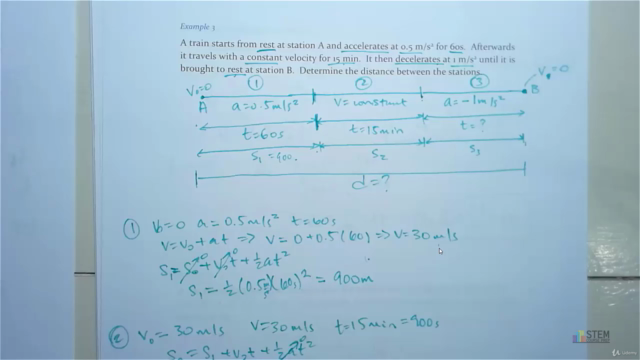 Example 3
A train starts from rest at station A and accelerates at 0.5 m/s² for 60s. Afterwards
it travels with a constant velocity for 15 min. It then decelerates at 1 m/s² until it is
brought to rest at station B. Determine the distance between the stations.
V₀=0 ① ② ③ V=0
A a=0.5m/s² V=constant a=-1m/s² B
t=60s t=15min t=?
S₁=900. S₂ S₃
d=?
① V₀=0 a=0.5m/s² t=60s
V=V₀+at => V=0+0.5(60) => V=30m/s
S₁=S₀+V₀t+½at²
S₁=½(0.5)(60)²=900m
② V₀=30m/s V=30m/s t=15min=900s
S₂=S₁+V₀t+½at²
STEM